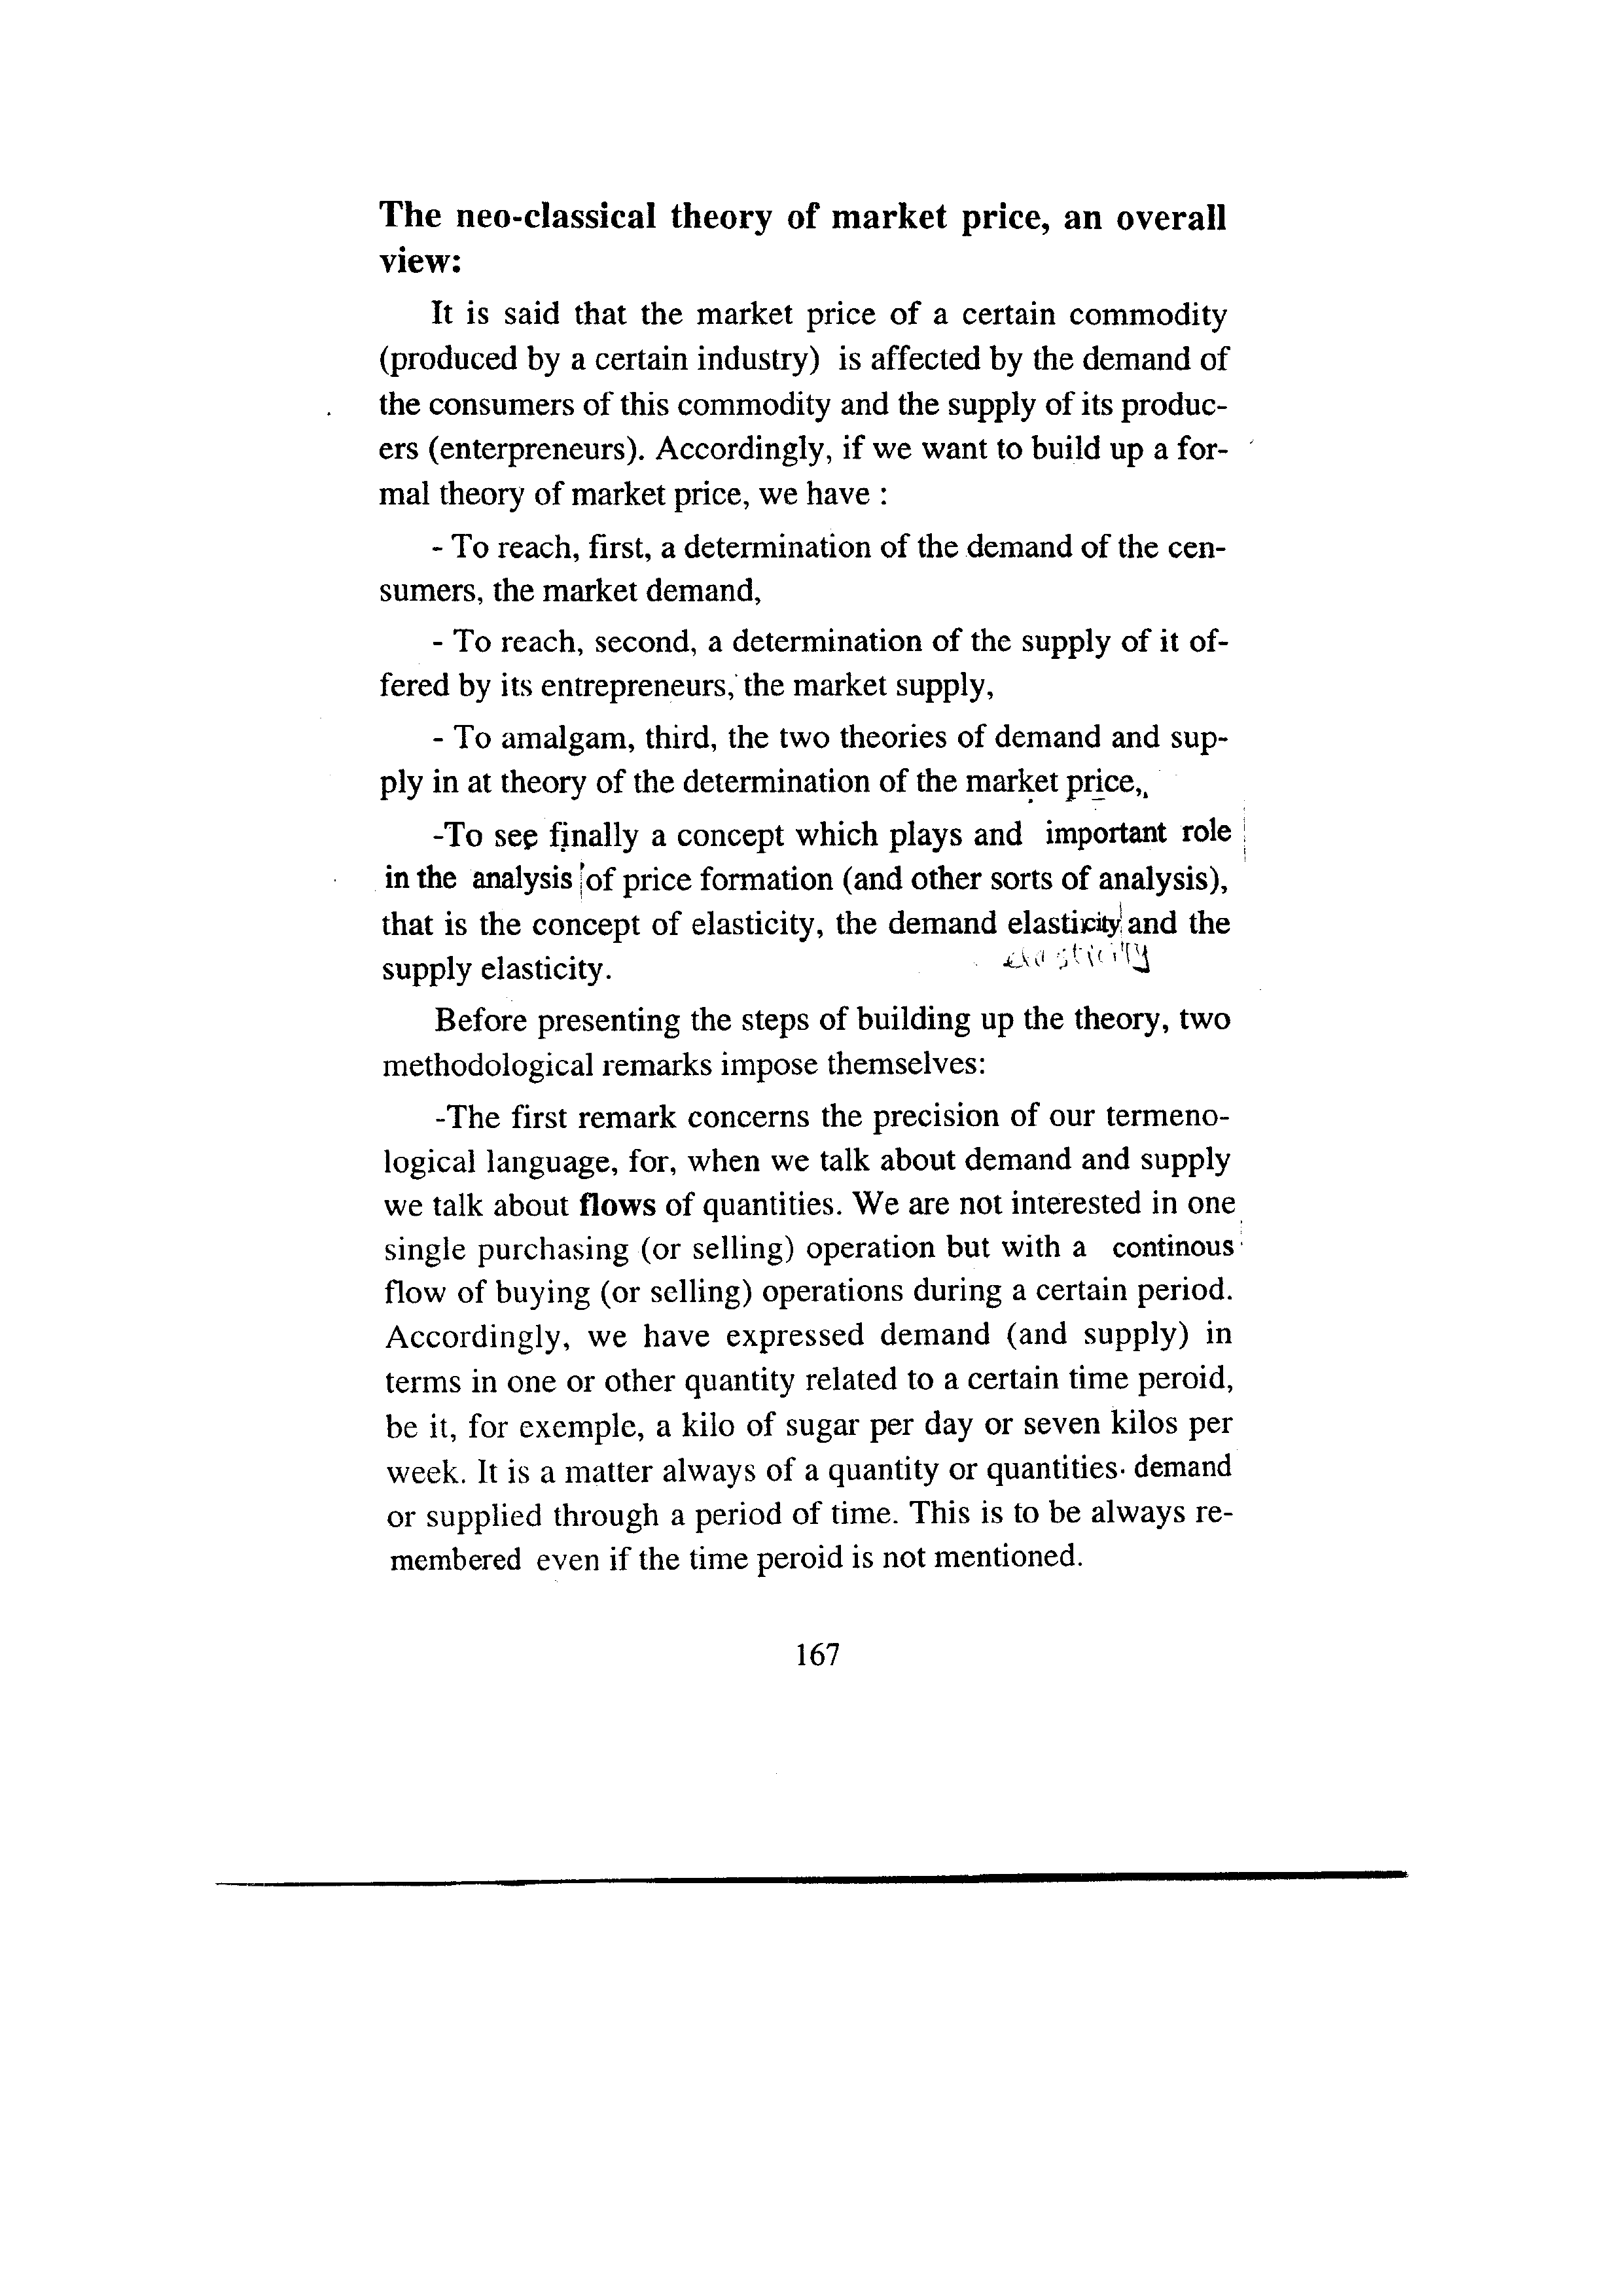 The neo-classical theory of market price, an overall
view:
It is said that the market price of a certain commodity
(produced by a certain industry) is affected by the demand of
the consumers of this commodity and the supply of its produc-
ers (enterpreneurs). Accordingly, if we want to build up a for-
mal theory of market price, we have :
- To reach, first, a determination of the demand of the cen-
sumers, the market demand,
- To reach, second, a determination of the supply of it of-
fered by its entrepreneurs, the market supply,
- To amalgam, third, the two theories of demand and sup-
ply in at theory of the determination of the market price,,
-To see finally a concept which plays and important role
in the analysis of price formation (and other sorts of analysis),
that is the concept of elasticity, the demand elasticity and the
elasticity
supply elasticity.
Before presenting the steps of building up the theory, two
methodological remarks impose themselves:
-The first remark concerns the precision of our termeno-
logical language, for, when we talk about demand and supply
we talk about flows of quantities. We are not interested in one
single purchasing (or selling) operation but with a continous
flow of buying (or selling) operations during a certain period.
Accordingly, we have expressed demand (and supply) in
terms in one or other quantity related to a certain time peroid,
be it, for exemple, a kilo of sugar per day or seven kilos per
week. It is a matter always of a quantity or quantities. demand
or supplied through a period of time. This is to be always re-
membered even if the time peroid is not mentioned.
167